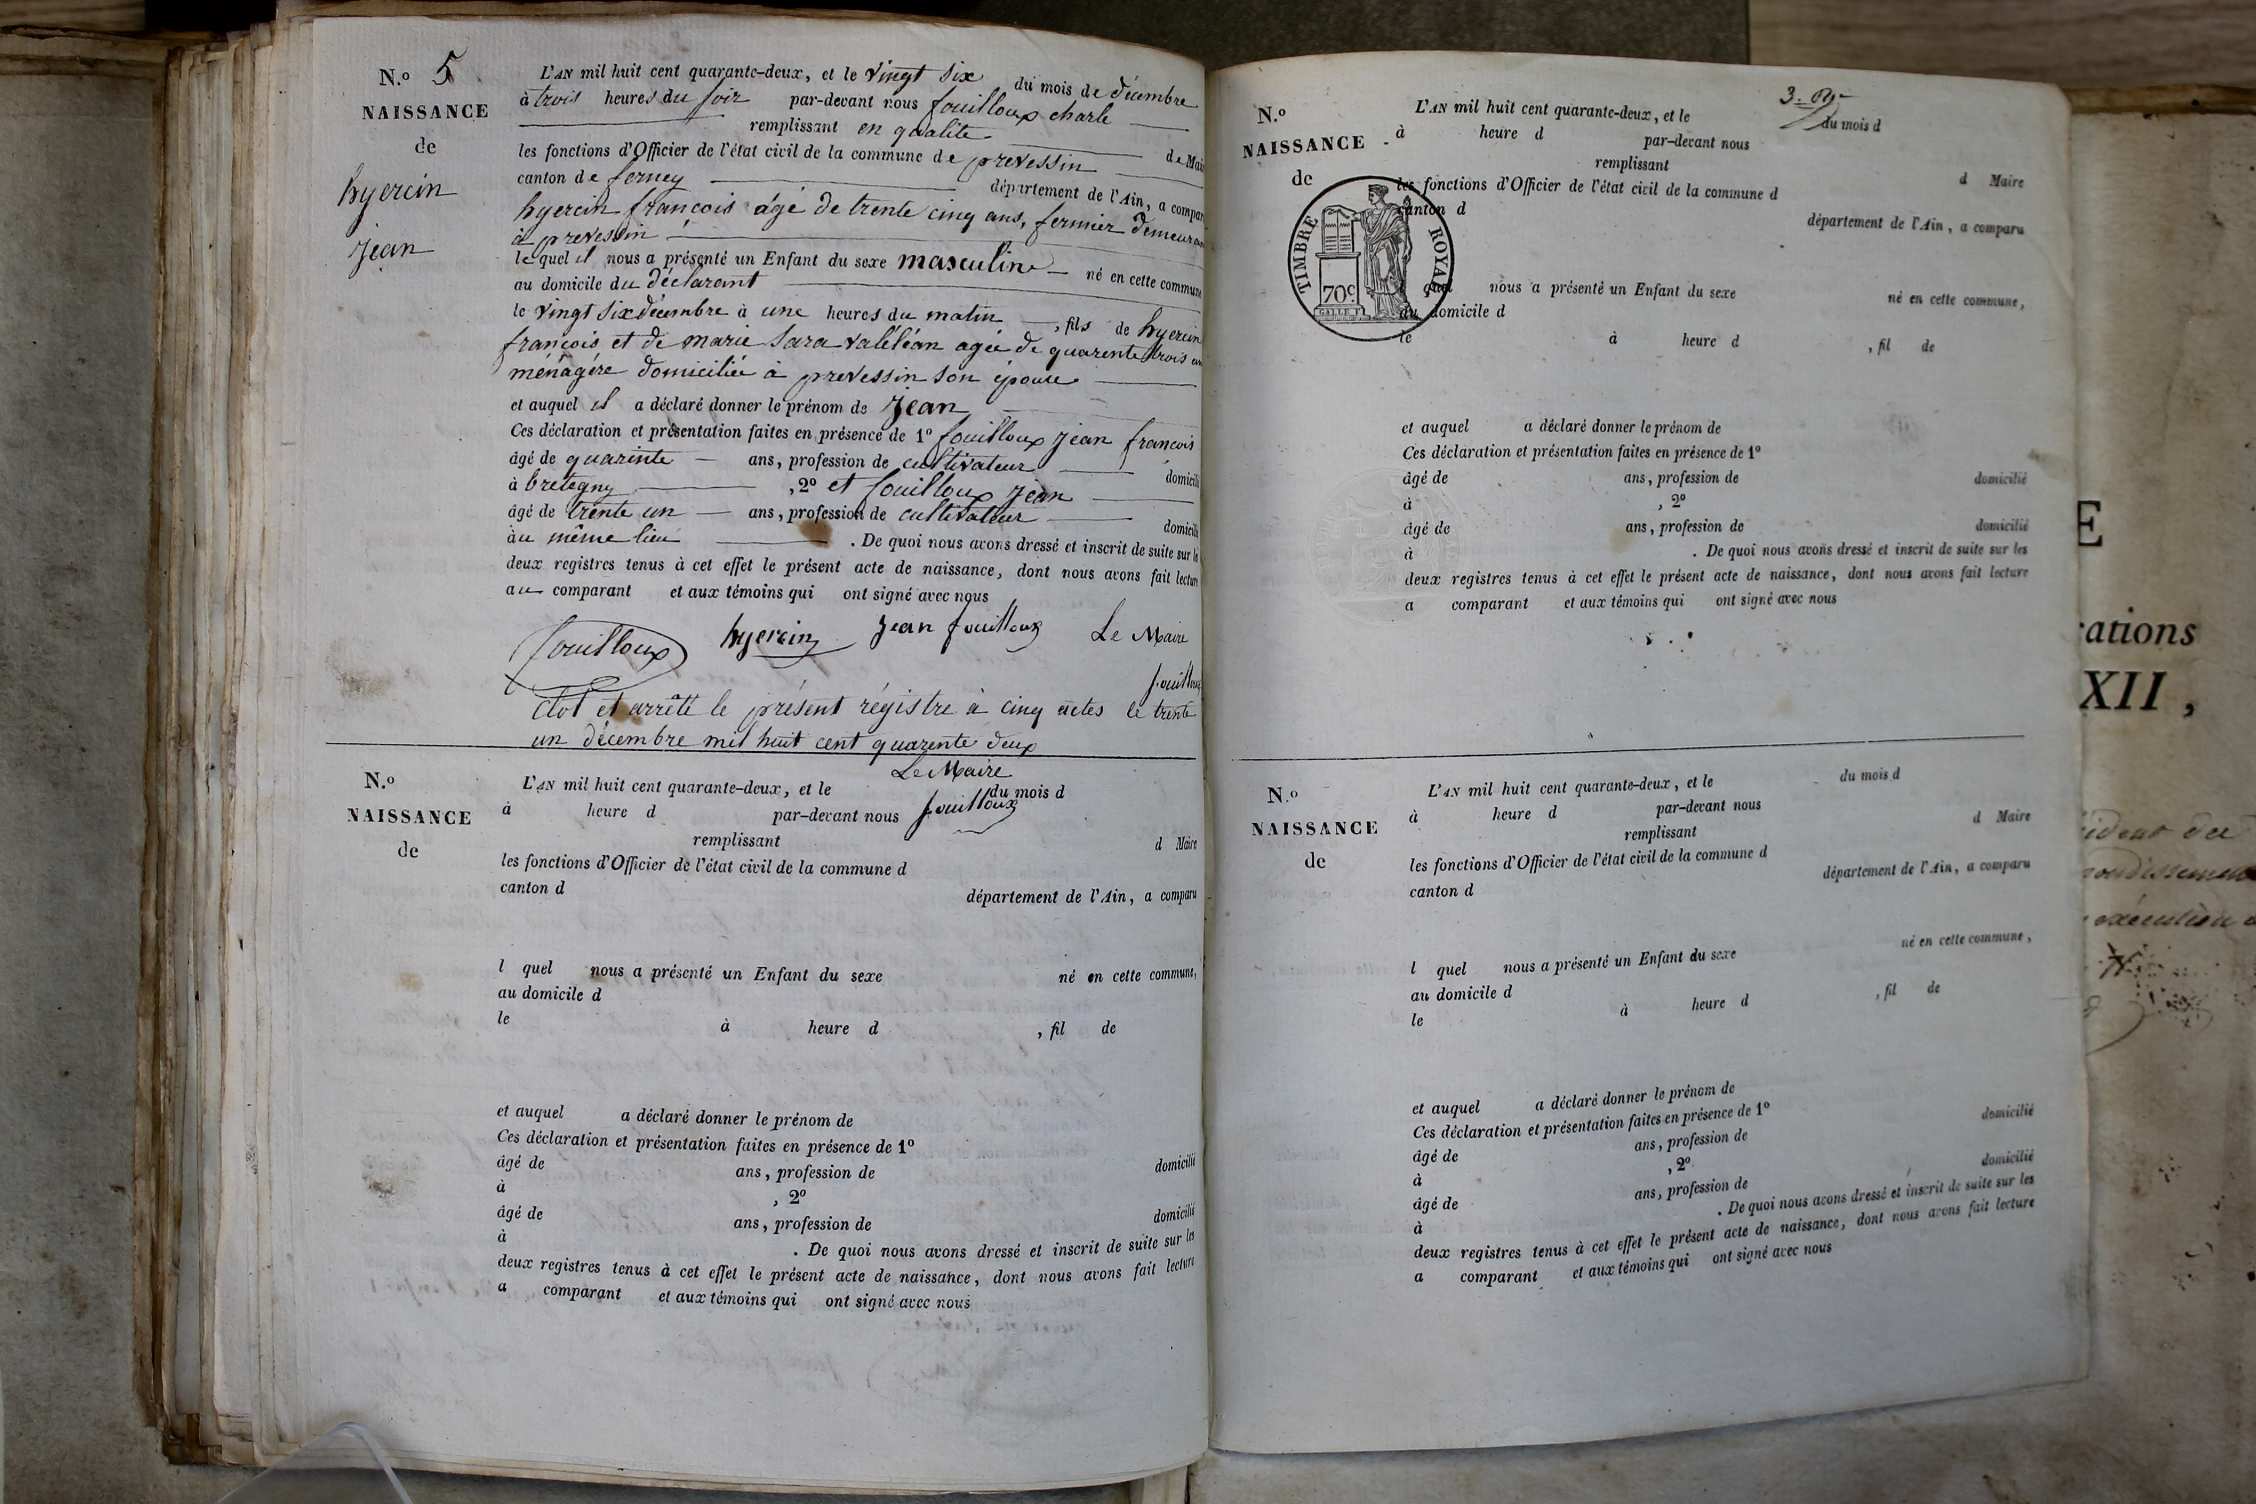 N.º 5
NAISSANCE
de
hyercin
jean
L'AN mil huit cent quarante-deux, et le vingt six du mois de décembre
à trois heures du soir par-devant nous fouilloux charle
remplissant en qualité de Mai
les fonctions d'Officier de l'état civil de la commune de prevessin
canton de ferney département de l'Ain, a compar
hyercin françois âgé de trente cinq ans, fermier demeuran
à prevessin
le quel il nous a présenté un Enfant du sexe masculin né en cette commune
au domicile du déclarant
le vingt six décembre à une heures du matin, fils de hyercin
françois et de marie Sara agée de quarente trois an
ménagére domiciliée à prevessin son épouse
et auquel il a déclaré donner le prénom de Jean
Ces déclaration et présentation faites en présence de 1º fouilloux jean francois
âgé de quarinte ans, profession de cultivateur domicili
à bretegny, 2º et fouilloux jean
âgé de trente un ans, profession de cultivateur domicili
àu même lieu. De quoi nous avons dressé et inscrit de suite sur le
deux registres tenus à cet effet le présent acte de naissance, dont nous avons fait lecture
au comparant et aux témoins qui ont signé avec nous
fouilloux hyercin Jean fouilloux Le Maire
fouilloux
Clot et arrêté le présent régistre à cinq actes le trente
un décembre mil huit cent quarente deux
Le Maire
fouilloux
N.º
NAISSANCE
de
L'AN mil huit cent quarante-deux, et le du mois d
à heure d par-devant nous
remplissant d Maire
les fonctions d'Officier de l'état civil de la commune d
canton d département de l'Ain, a comparu
l quel nous a présenté un Enfant du sexe né en cette commune,
au domicile d
le à heure d, fil de
et auquel a déclaré donner le prénom de
Ces déclaration et présentation faites en présence de 1º
âgé de ans, profession de domicilié
à, 2º
âgé de ans, profession de domicilié
à. De quoi nous avons dressé et inscrit de suite sur les
deux registres tenus à cet effet le présent acte de naissance, dont nous avons fait lecture
a comparant et aux témoins qui ont signé avec nous
N.º
NAISSANCE
de
L'AN mil huit cent quarante-deux, et le du mois d
à heure d par-devant nous
remplissant d Maire
les fonctions d'Officier de l'état civil de la commune d
canton d département de l'Ain, a comparu
TIMBRE ROYAL
70c.
quel nous a présenté un Enfant du sexe né en cette commune,
au domicile d
le à heure d, fil de
et auquel a déclaré donner le prénom de
Ces déclaration et présentation faites en présence de 1º
âgé de ans, profession de domicilié
à, 2º
âgé de ans, profession de domicilié
à. De quoi nous avons dressé et inscrit de suite sur les
deux registres tenus à cet effet le présent acte de naissance, dont nous avons fait lecture
a comparant et aux témoins qui ont signé avec nous
N.º
NAISSANCE
de
L'AN mil huit cent quarante-deux, et le du mois d
à heure d par-devant nous
remplissant d Maire
les fonctions d'Officier de l'état civil de la commune d
canton d département de l'Ain, a comparu
l quel nous a présenté un Enfant du sexe né en cette commune,
au domicile d
le à heure d, fil de
et auquel a déclaré donner le prénom de
Ces déclaration et présentation faites en présence de 1º
âgé de ans, profession de domicilié
à, 2º
âgé de ans, profession de domicilié
à. De quoi nous avons dressé et inscrit de suite sur les
deux registres tenus à cet effet le présent acte de naissance, dont nous avons fait lecture
a comparant et aux témoins qui ont signé avec nous
E
ations
XII,